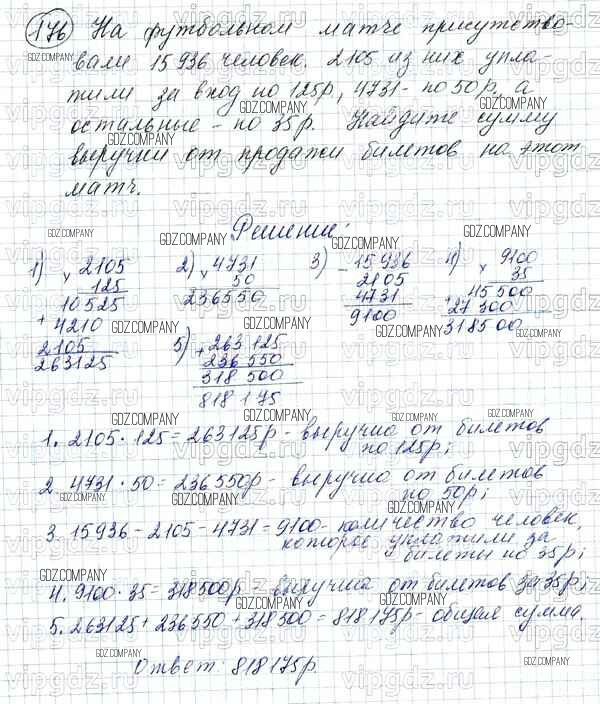 176 На футбольном матче присутство-
вали 15936 человек. 2105 из них упла-
тили за вход по 125р, 4731 - по 50р, а
остальные - по 35р. Найдите сумму
выручки от продажи билетов на этот
матч.
Решение:
1) 2105
× 125
10525
+ 4210
2105
263125
2) 4731
× 50
236550
3) 15936
- 2105
4731
9100
4) 9100
× 35
45500
+ 27300
318500
5) 263125
+ 236550
318500
818175
1. 2105 · 125 = 263125р - выручка от билетов
по 125р;
2. 4731 · 50 = 236550р - выручка от билетов
по 50р;
3. 15936 - 2105 - 4731 = 9100 - количество человек,
которое уплатили за
билеты по 35р;
4. 9100 · 35 = 318500р - выручка от билетов за 35р;
5. 263125 + 236550 + 318500 = 818175р - общая сумма.
Ответ: 818175р.
GDZ.COMPANY
vipgdz.ru